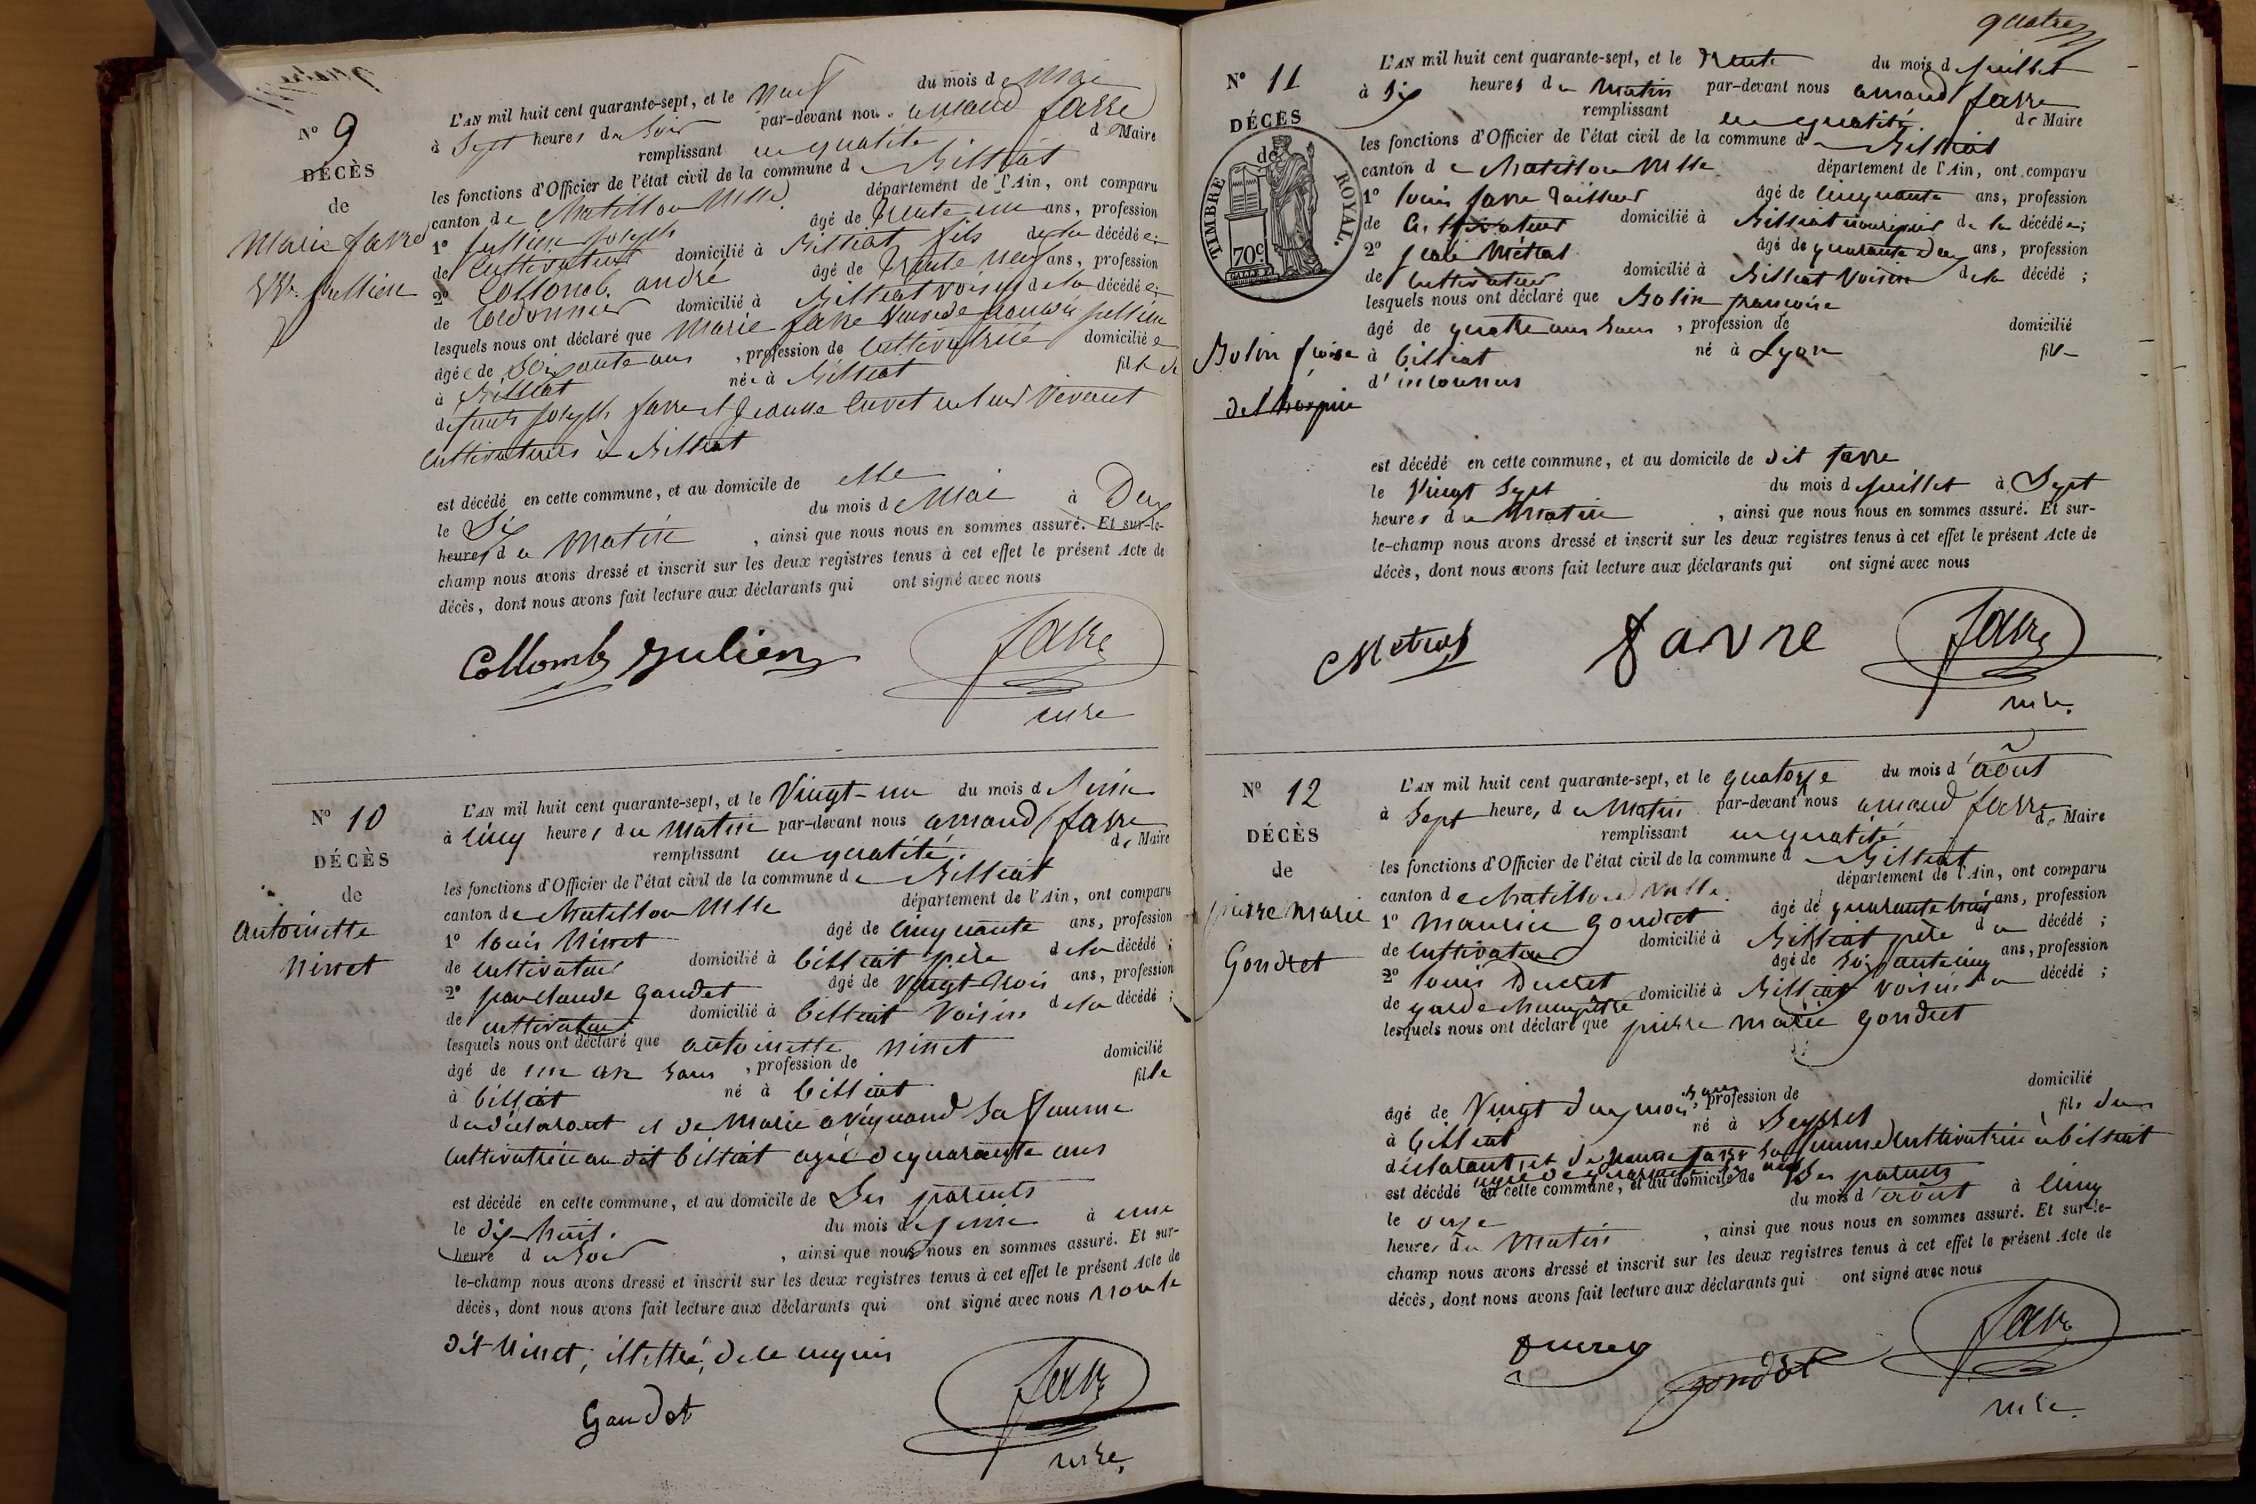 N° 9
DÉCÈS
de
Marie favre
Vve jullien
L'AN mil huit cent quarante-sept, et le neuf du mois de Mai
à Sept heures du Soir par-devant nous amand favre
remplissant en qualité de Maire
les fonctions d'Officier de l'état civil de la commune de Billiat
canton de Chatillon Mlle département de l'Ain, ont comparu
1° jullien joseph âgé de trente un ans, profession
de Cultivateur domicilié à Billiat fils de la décédée;
2° Collomb andré âgé de trente neuf ans, profession
de Cordonnier domicilié à Billiat voisin de la décédée;
lesquels nous ont déclaré que Marie favre Veuve de jullien
âgée de Soixante ans, profession de Cultivatrice domiciliée
à Billiat née à Billiat fille de
defunts joseph favre et jeanne Cuvet en leur Vivant
Cultivateurs à Billiat
est décédé en cette commune, et au domicile de elle
le Six du mois de Mai à Deux
heures du Matin, ainsi que nous nous en sommes assuré. Et sur-le-
champ nous avons dressé et inscrit sur les deux registres tenus à cet effet le présent Acte de
décès, dont nous avons fait lecture aux déclarants qui ont signé avec nous
Collomb julien favre
mre
N° 10
DÉCÈS
de
Antoinette
Ninet
L'AN mil huit cent quarante-sept, et le Vingt-un du mois de juin
à Cinq heures du Matin par-devant nous amand favre
remplissant en qualité de Maire
les fonctions d'Officier de l'état civil de la commune de Billiat
canton de Chatillon Mlle département de l'Ain, ont comparu
1° louis Ninet âgé de Cinquante ans, profession
de Cultivateur domicilié à billiat père de la décédé;
2° jean claude Gaudet âgé de Vingt trois ans, profession
de cultivateur domicilié à billiat Voisin de la décédé;
lesquels nous ont déclaré que antoinette ninet
âgé de un an Sans, profession de domicilié
à billiat né à billiat fille
du déclarant et de Marie Sa femme
Cultivatrice au dit billiat agée de quarante ans
est décédé en cette commune, et au domicile de Ses parents
le dix huit. du mois de juin à une
heure du Soir, ainsi que nous nous en sommes assuré. Et sur-
le-champ nous avons dressé et inscrit sur les deux registres tenus à cet effet le présent Acte de
décès, dont nous avons fait lecture aux déclarants qui ont signé avec nous non le
dit Ninet, illettré, de ce enquis
Gaudet favre
mre
quatre
N° 11
DÉCÈS
de
TIMBRE ROYAL.
70c
Bolin fcoise
de l'hospice
L'AN mil huit cent quarante-sept, et le trente du mois de juillet
à Six heures du Matin par-devant nous amand favre
remplissant en qualité de Maire
les fonctions d'Officier de l'état civil de la commune de Billiat
canton de Chatillon Mlle département de l'Ain, ont comparu
1° louis favre tailleur âgé de Cinquante ans, profession
de Cultivateur domicilié à Billiat nourricier de la décédée;
2° jean Métral âgé de quarante deux ans, profession
de Cultivateur domicilié à Billiat Voisin de la décédé;
lesquels nous ont déclaré que Bolin françoise
âgé de quatre ans Sans, profession de domicilié
à billiat né à Lyon fille
d'inconnus
est décédé en cette commune, et au domicile de dit favre
le Vingt Sept du mois de juillet à Sept
heures du Matin, ainsi que nous nous en sommes assuré. Et sur-
le-champ nous avons dressé et inscrit sur les deux registres tenus à cet effet le présent Acte de
décès, dont nous avons fait lecture aux déclarants qui ont signé avec nous
Metral favre favre
mre.
N° 12
DÉCÈS
de
pierre Marie
Gondret
L'AN mil huit cent quarante-sept, et le quatorze du mois d'août
à Sept heures du Matin par-devant nous amand favre
remplissant en qualité de Maire
les fonctions d'Officier de l'état civil de la commune de Billiat
canton de Chatillon Mlle. département de l'Ain, ont comparu
1° Maurice Gondret âgé de quarante trois ans, profession
de Cultivateur domicilié à Billiat père du décédé;
2° louis Ducret âgé de Soixante cinq ans, profession
de garde Champêtre domicilié à Billiat Voisin du décédé;
lesquels nous ont déclaré que pierre Marie Gondret
âgé de Vingt deux mois, Sans profession de domicilié
à billiat né à Seyssel fils du
déclarant, et de jeanne favre Sa femme Cultivatrice à billiat
agée de quarante
est décédé en cette commune, et au domicile de Ses parents
le onze du mois d'août à Cinq
heures du Matin, ainsi que nous nous en sommes assuré. Et sur-le-
champ nous avons dressé et inscrit sur les deux registres tenus à cet effet le présent Acte de
décès, dont nous avons fait lecture aux déclarants qui ont signé avec nous
Ducret gondret favre
mre.